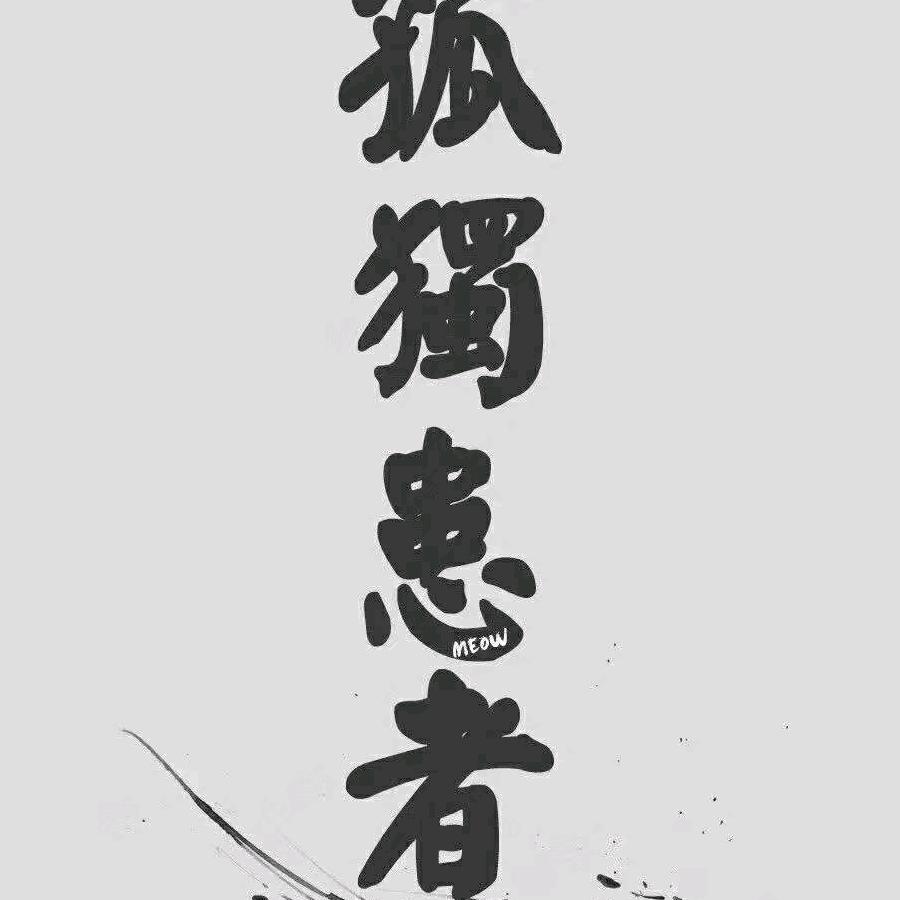 孤
獨
患
MEOW
者